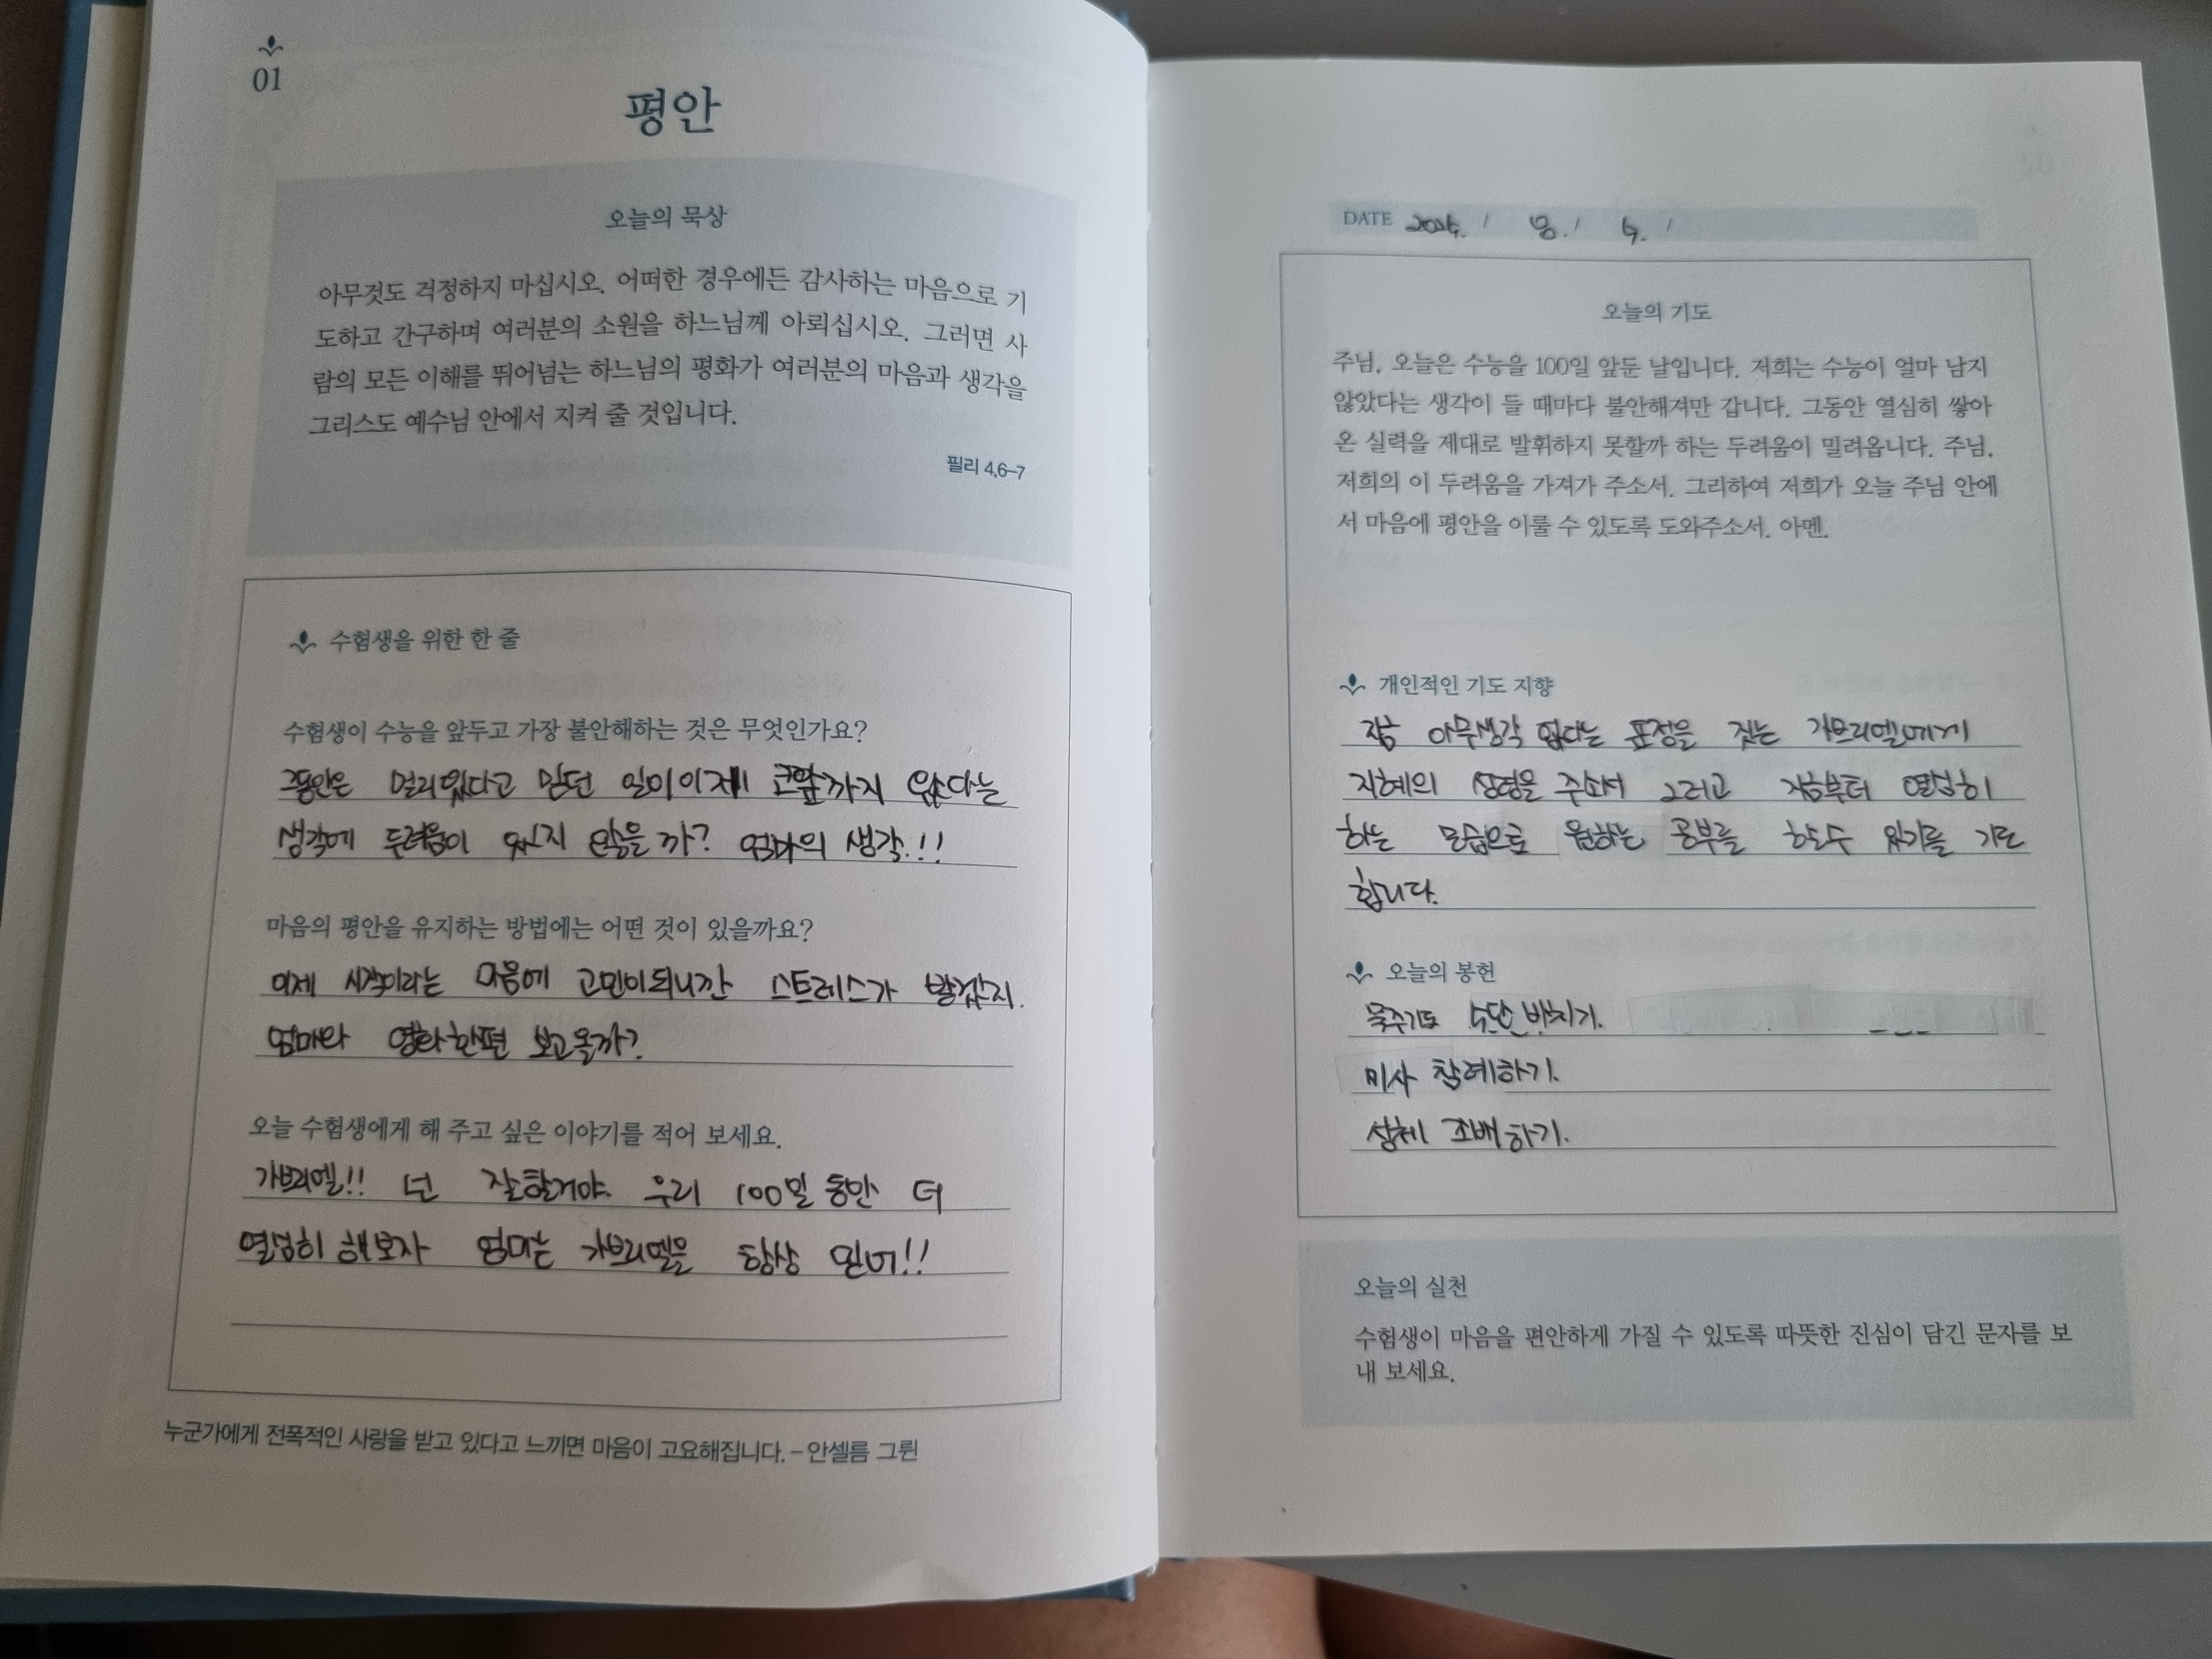 01
평안
오늘의 묵상
아무것도 걱정하지 마십시오. 어떠한 경우에든 감사하는 마음으로 기
도하고 간구하며 여러분의 소원을 하느님께 아뢰십시오. 그러면 사
람의 모든 이해를 뛰어넘는 하느님의 평화가 여러분의 마음과 생각을
그리스도 예수님 안에서 지켜 줄 것입니다.
필리 4,6–7
수험생을 위한 한 줄
수험생이 수능을 앞두고 가장 불안해하는 것은 무엇인가요?
그동안은 멀리있다고 믿던 일이 이제 코앞까지 왔다는
생각에 두려움이 있지 않을까? 엄마의 생각!!
마음의 평안을 유지하는 방법에는 어떤 것이 있을까요?
이제 시작이라는 마음에 고민이되니깐 스트레스가 쌓겠지.
엄마와 영화한편 보고올까?
오늘 수험생에게 해 주고 싶은 이야기를 적어 보세요.
가브리엘!! 넌 잘할거야. 우리 100일 동안 더
열심히 해보자 엄마는 가브리엘을 항상 믿어!!
누군가에게 전폭적인 사랑을 받고 있다고 느끼면 마음이 고요해집니다. – 안셀름 그륀
DATE 2024. / 8. / 6. /
오늘의 기도
주님, 오늘은 수능을 100일 앞둔 날입니다. 저희는 수능이 얼마 남지
않았다는 생각이 들 때마다 불안해져만 갑니다. 그동안 열심히 쌓아
온 실력을 제대로 발휘하지 못할까 하는 두려움이 밀려옵니다. 주님,
저희의 이 두려움을 가져가 주소서. 그리하여 저희가 오늘 주님 안에
서 마음에 평안을 이룰 수 있도록 도와주소서. 아멘.
개인적인 기도 지향
아무생각 없다는 표정을 짓는 가브리엘에게
지혜의 성령을 주소서 그리고 지금부터 열심히
하는 모습으로 원하는 공부를 할수 있기를 기도
합니다.
오늘의 봉헌
묵주기도 5단 바치기.
미사 참례하기.
성체 조배하기.
오늘의 실천
수험생이 마음을 편안하게 가질 수 있도록 따뜻한 진심이 담긴 문자를 보
내 보세요.